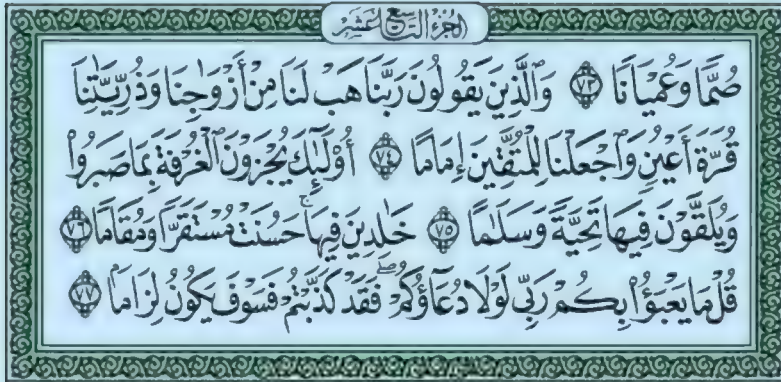 الجزء التاسع عشر
صُمًّا وَعُمْيَانًا ﴿٧٣﴾ وَٱلَّذِينَ يَقُولُونَ رَبَّنَا هَبْ لَنَا مِنْ أَزْوَٰجِنَا وَذُرِّيَّٰتِنَا
قُرَّةَ أَعْيُنٍ وَٱجْعَلْنَا لِلْمُتَّقِينَ إِمَامًا ﴿٧٤﴾ أُو۟لَٰٓئِكَ يُجْزَوْنَ ٱلْغُرْفَةَ بِمَا صَبَرُوا۟
وَيُلَقَّوْنَ فِيهَا تَحِيَّةً وَسَلَٰمًا ﴿٧٥﴾ خَٰلِدِينَ فِيهَا ۚ حَسُنَتْ مُسْتَقَرًّا وَمُقَامًا ﴿٧٦﴾
قُلْ مَا يَعْبَؤُا۟ بِكُمْ رَبِّى لَوْلَا دُعَآؤُكُمْ ۖ فَقَدْ كَذَّبْتُمْ فَسَوْفَ يَكُونُ لِزَامًۢا ﴿٧٧﴾